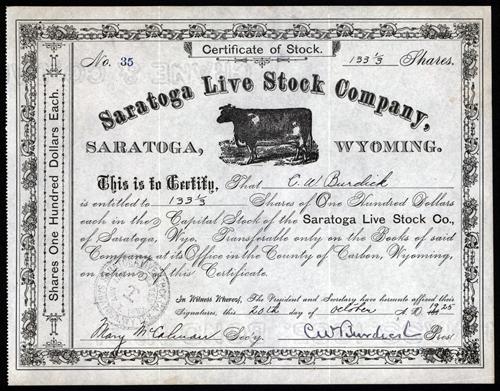 Certificate of Stock.
No. 35
133 1/3 Shares.
Saratoga Live Stock Company,
SARATOGA, WYOMING.
This is to Certify, That C. W. Burdick
is entitled to 133⅓ Shares of One Hundred Dollars
each in the Capital Stock of the Saratoga Live Stock Co.,
of Saratoga, Wyo. Transferable only on the Books of said
Company at its Office in the County of Carbon, Wyoming,
on return of this Certificate.
In Witness Whereof, The President and Secretary have hereunto affixed their
Signatures, this 20th day of October A.D. 1925
Mary McCalman Sec'y. C W Burdick Pres't
Shares One Hundred Dollars Each.